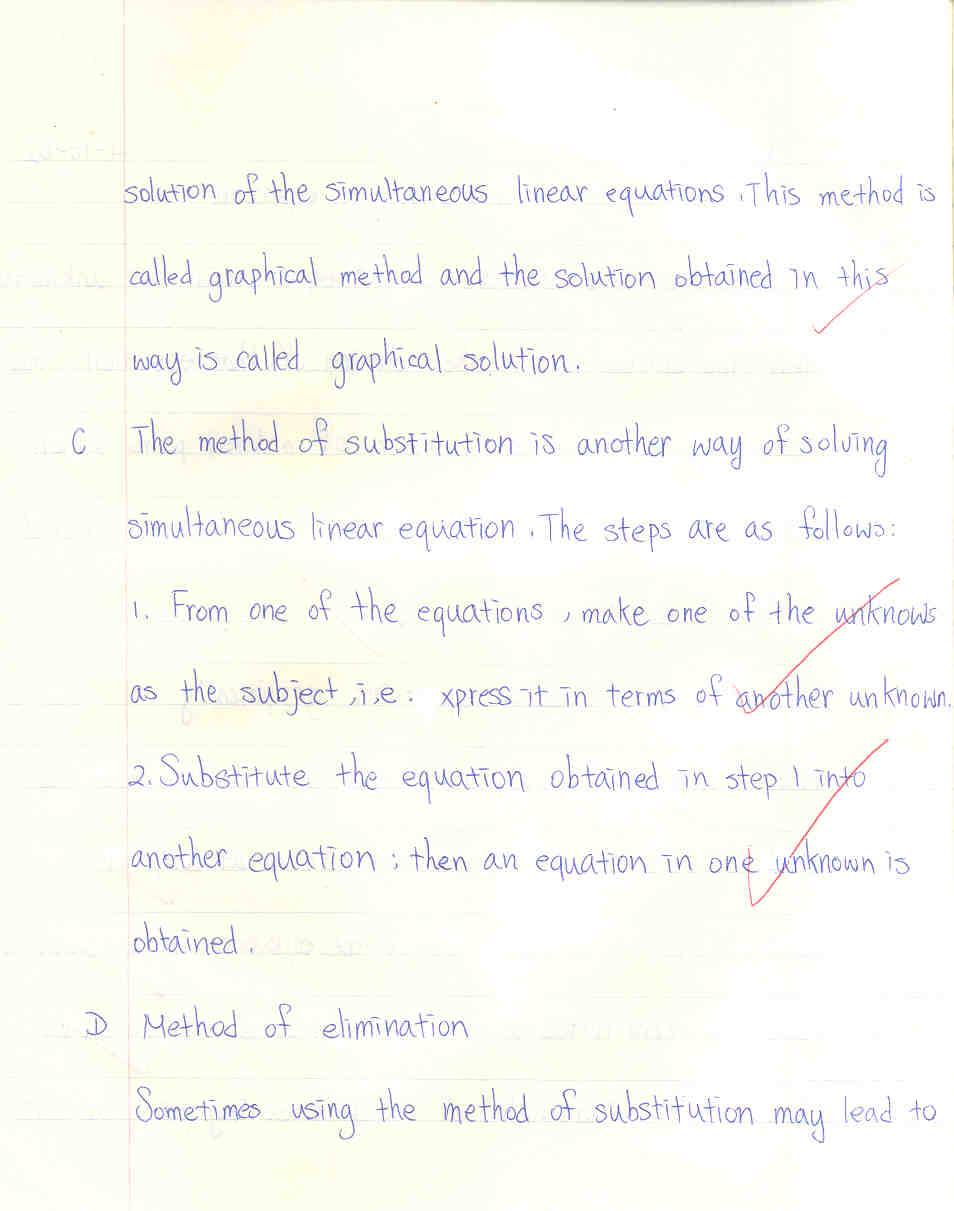 solution of the simultaneous linear equations. This method is
called graphical method and the solution obtained in this
way is called graphical solution.
C The method of substitution is another way of solving
simultaneous linear equation. The steps are as follows:
1. From one of the equations, make one of the unknows
as the subject, i.e. xpress it in terms of another unknown.
2. Substitute the equation obtained in step 1 into
another equation; then an equation in one unknown is
obtained.
D Method of elimination
Sometimes using the method of substitution may lead to